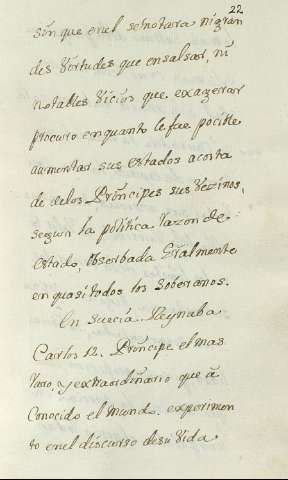 22
sin que en el se notara ni gran
des Vertudes que ensalsar, ni
notables vicios que exagerar
procuro en quanto le fue pocible
aumentar sus estados acosta
de delos Prinsipes sus Vezinos,
segun la politica razon de
estado, observada Gralmente
en quasi todos los soberanos.
En suecia Raynaba
Carlos 12. Principe el mas
raro, y extraordinario que a
Conocido el mundo. experimen
to en el discurso de su vida